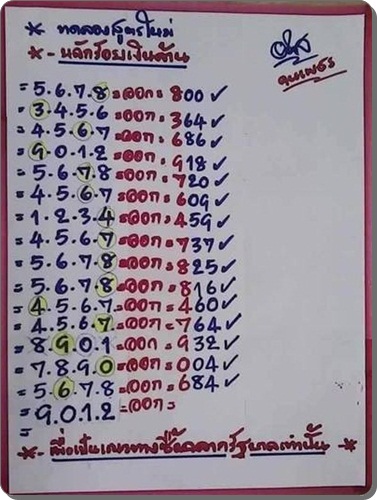 * ทดลองสูตรใหม่
* - หลักร้อยเงินล้าน
= 5.6.7.8 =ออก= 800 ✓
= 3.4.5.6 =ออก= 364 ✓
= 4.5.6.7 =ออก= 686 ✓
= 9.0.1.2 =ออก= 918 ✓
= 5.6.7.8 =ออก= 720 ✓
= 4.5.6.7 =ออก= 609 ✓
= 1.2.3.4 =ออก= 459 ✓
= 4.5.6.7 =ออก= 737 ✓
= 5.6.7.8 =ออก= 825 ✓
= 5.6.7.8 =ออก= 816 ✓
= 4.5.6.7 =ออก= 460 ✓
= 4.5.6.7 =ออก= 764 ✓
= 8.9.0.1 =ออก= 932 ✓
= 7.8.9.0 =ออก= 004 ✓
= 5.6.7.8 =ออก= 684 ✓
= 9.0.1.2 =ออก=
=
* - เพื่อเป็นแนวทางซื้อฉลากรัฐบาลเท่านั้น - *